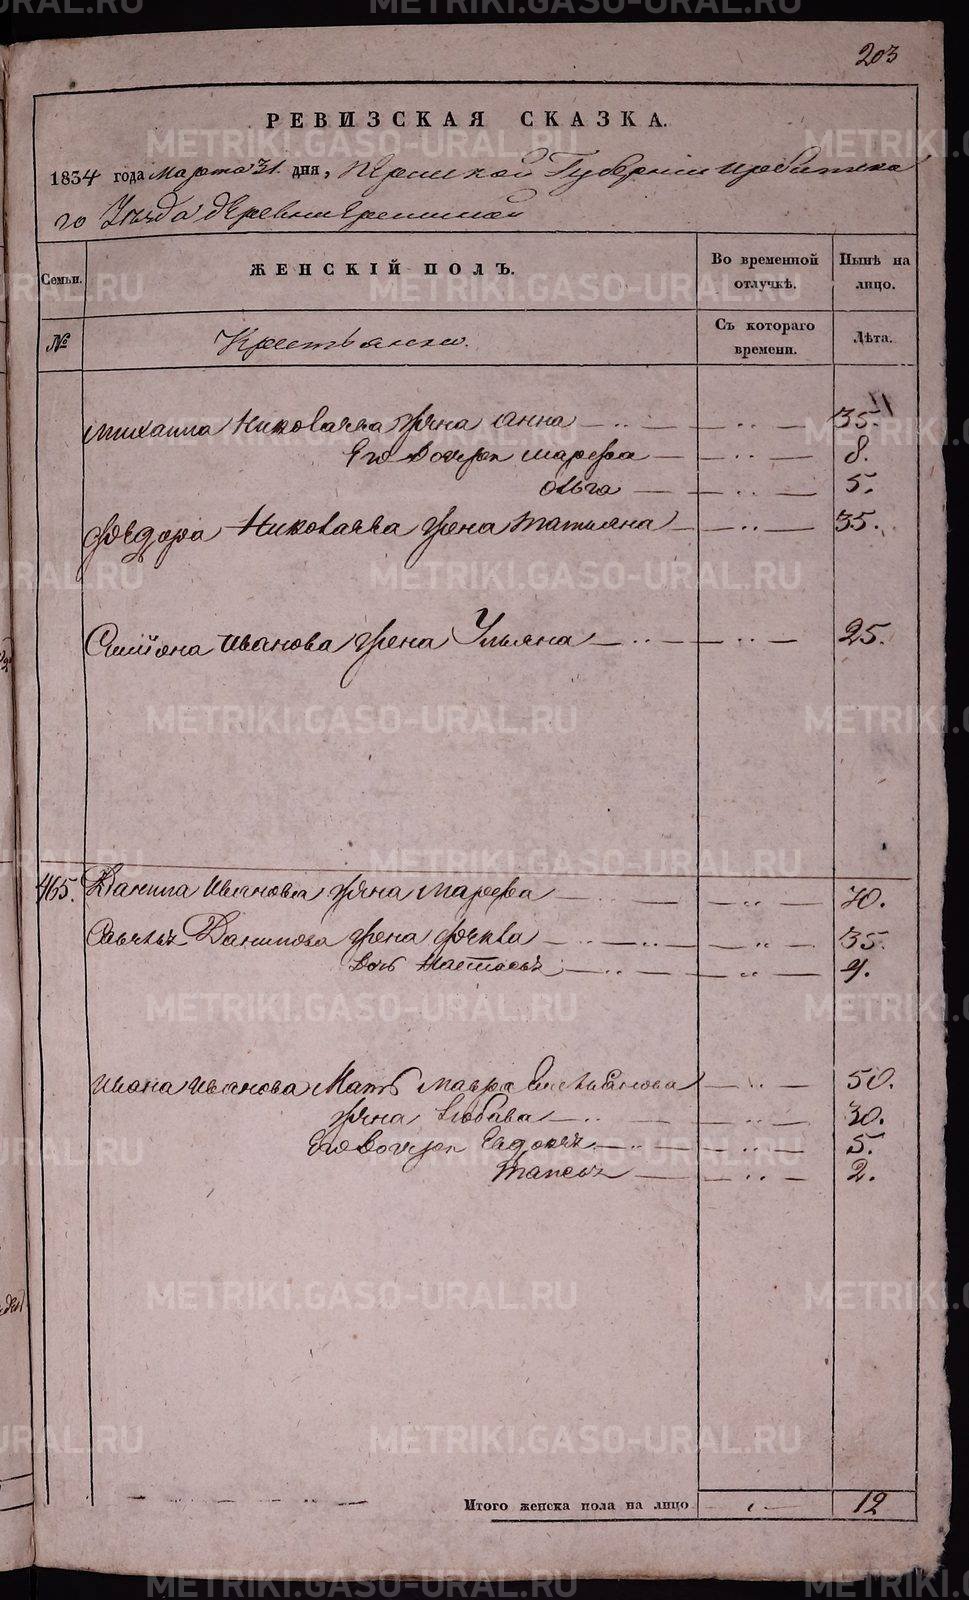 203
РЕВИЗСКАЯ СКАЗКА.
1834 года Марта 31. дня, Пермской Губернии Ирбитска
го Уѣзда деревни
Семьи. ЖЕНСКІЙ ПОЛЪ. Во временной отлучкѣ. Нынѣ на лицо.
№ Крестьянки. Съ котораго времени. Лѣта.
Михаила Николаева жена Анна 35.
Его дочери Марфа 8.
Ольга 5.
Федора Николаева жена Татьяна 35.
Симіона Иванова жена Ульяна 25.
465. Данила Иванова жена Марфа 70.
Данилова жена Фекла 35.
дочь Настасья 4.
Ивана Иванова Мать Мавра Емельянова 50.
жена Любава 30.
Его дочери 5.
2.
Итого женска пола на лицо 12
METRIKI.GASO-URAL.RU